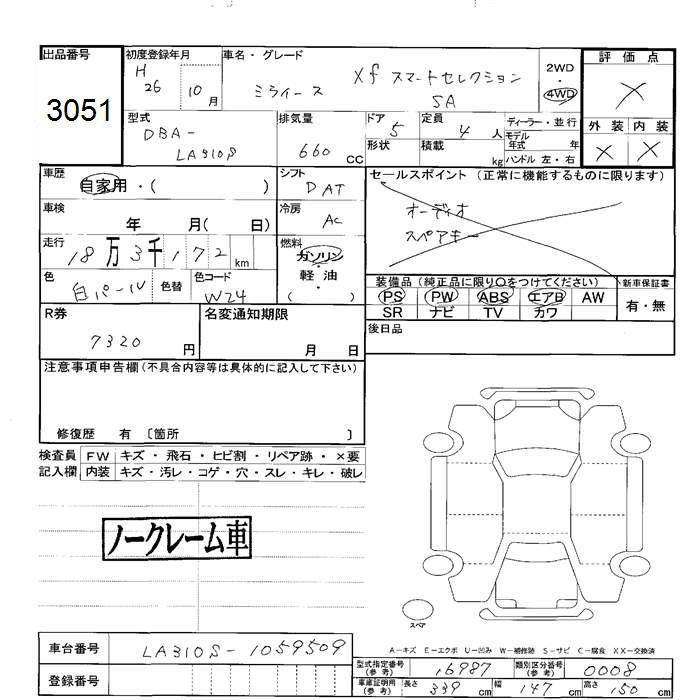 出品番号
3051
初度登録年月
H 26 10月
車名・グレード
ミライース Xf スマートセレクション
SA
2WD
・
4WD
評価点
×
外装 内装
× ×
型式
DBA-
LA310S
排気量
660 CC
ドア
5
形状
定員
4 人
積載
kg
ディーラー・並行
モデル年式 年
ハンドル 左・右
車歴
自家用・( )
シフト
DAT
車検
年 月( 日)
冷房
AC
走行
18万3千172km
燃料
ガソリン
・
軽油
( )
色
白パール
色替
色コード
W24
セールスポイント (正常に機能するものに限ります)
オーディオ
スペアキー
装備品(純正品に限り○をつけてください)
PS PW ABS エアB AW
SR ナビ TV カワ
新車保証書
有・無
R券
7320 円
名変通知期限
月 日
後日品
注意事項申告欄(不具合内容等は具体的に記入して下さい)
修復歴 有 〔箇所 〕
検査員 FW キズ・飛石・ヒビ割・リペア跡・×要
記入欄 内装 キズ・汚レ・コゲ・穴・スレ・キレ・破レ
ノークレーム車
スペア
A-キズ E-エクボ U-凹み W-補修跡 S-サビ C-腐食 XX-交換済
車台番号 LA310S-1059509
登録番号
型式指定番号(参考) 16987 類別区分番号(参考) 0008
車庫証明用(参考) 長さ 339 cm 幅 147 cm 高さ 150 cm